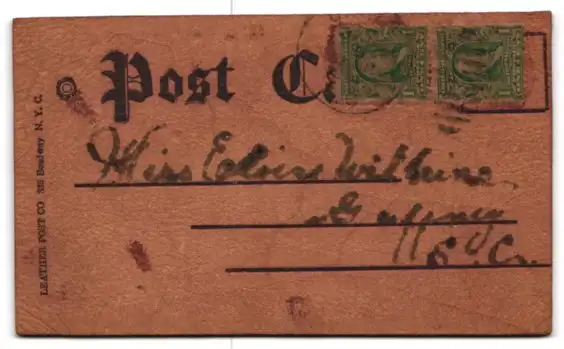 Post C
LEATHER POST CO 325 Broadway N. Y. C.
Miss Edwin Wilkins
Gaffney
S. C.